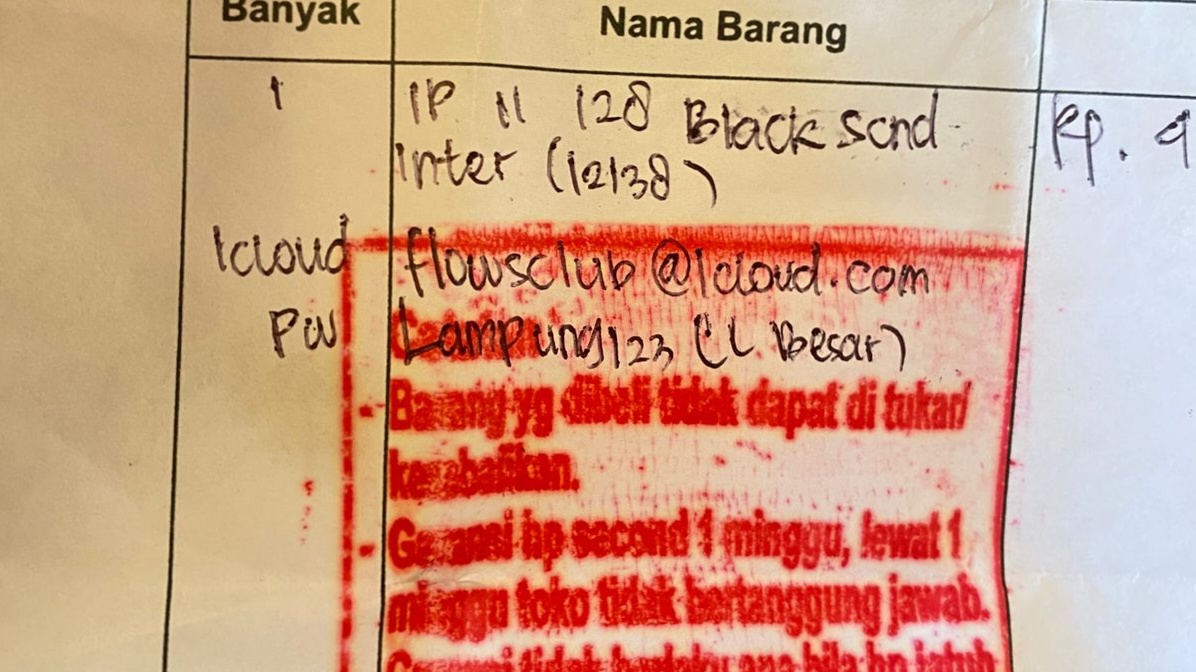 Banyak Nama Barang
1 IP 11 128 Black scnd Rp. 9
Inter (12138)
Icloud flowsclub@Icloud.com
PW Lampung123 (L Besar)
- Barang yg dibeli tidak dapat di tukar/
kembalikan.
- Garansi hp second 1 minggu, lewat 1
minggu toko tidak bertanggung jawab.
Garansi tidak berlaku apa bila hp jatuh